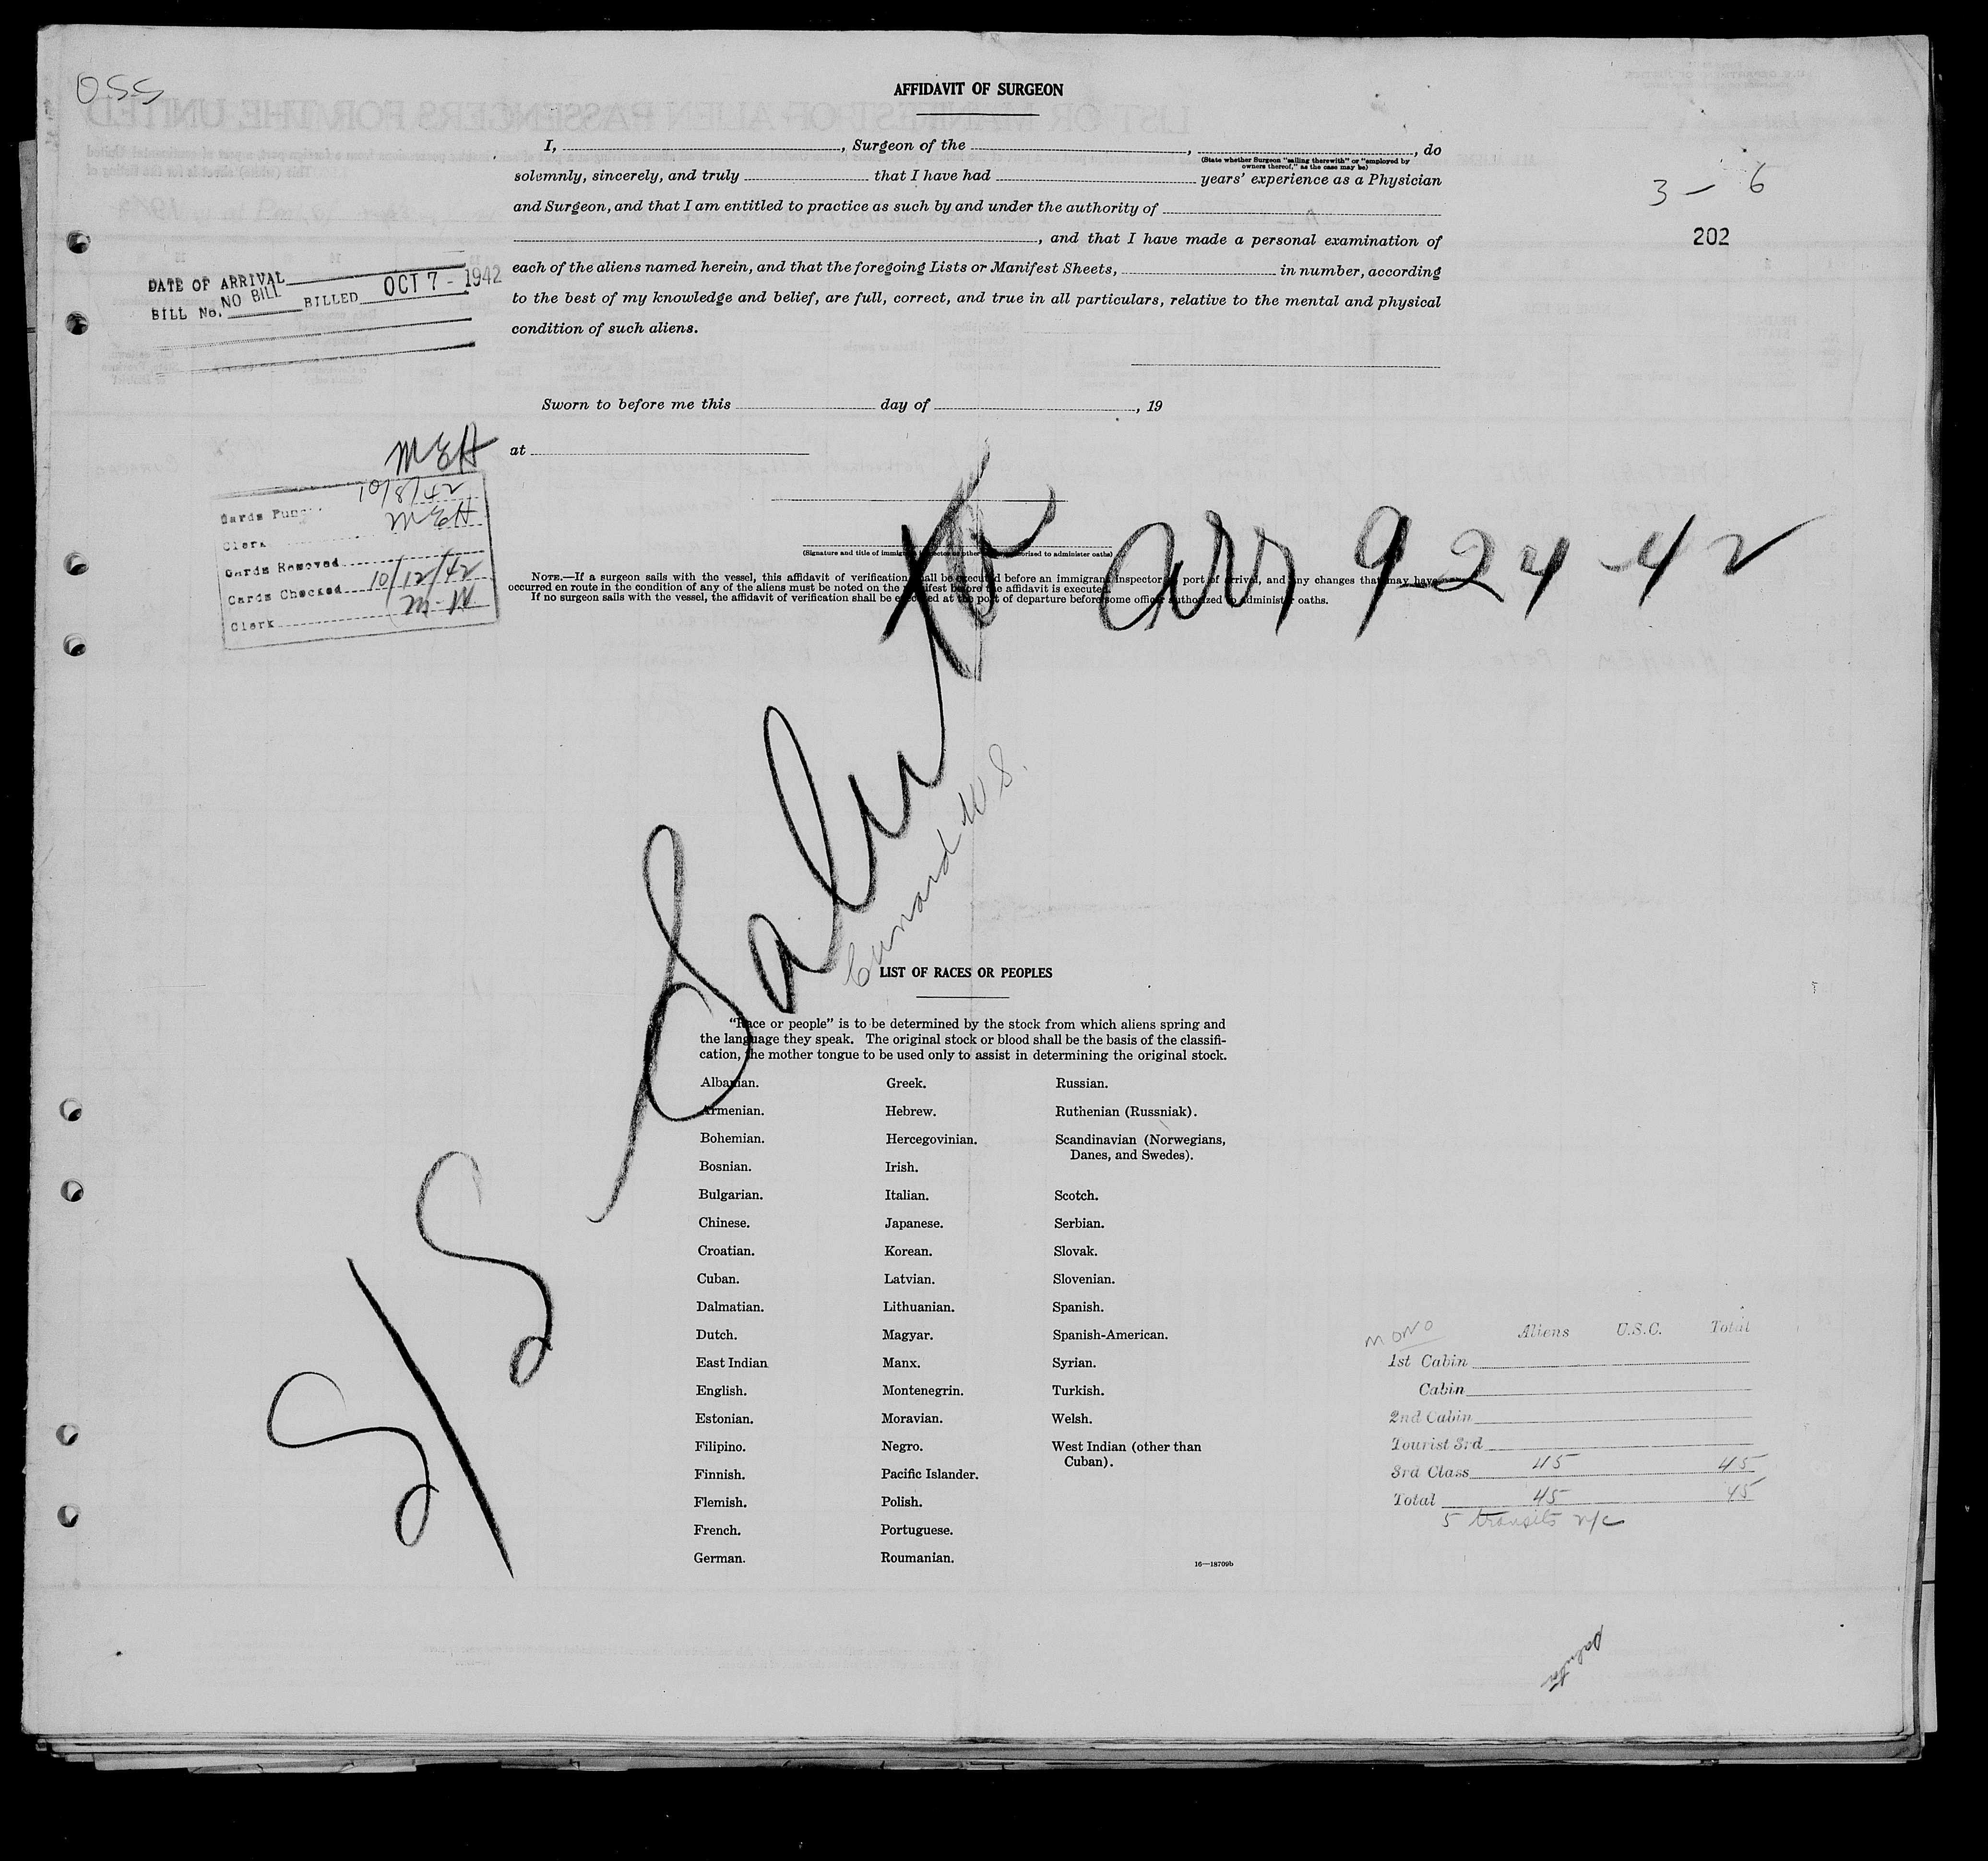 OSS
AFFIDAVIT OF SURGEON
I, , Surgeon of the , , do
(State whether Surgeon "sailing therewith" or "employed by
owners thereof," as the case may be)
solemnly, sincerely, and truly that I have had years' experience as a Physician
and Surgeon, and that I am entitled to practice as such by and under the authority of
, and that I have made a personal examination of
each of the aliens named herein, and that the foregoing Lists or Manifest Sheets, in number, according
to the best of my knowledge and belief, are full, correct, and true in all particulars, relative to the mental and physical
condition of such aliens.
3 - 6
202
DATE OF ARRIVAL
BILL No. NO BILL BILLED OCT 7 - 1942
Sworn to before me this day of , 19
at
MEH
Cards Punc 10/8/42
Clerk MEH
Cards Removed
Cards Checked 10/12/42
Clerk M-W
(Signature and title of immigrant inspector or other officer authorized to administer oaths)
NOTE.—If a surgeon sails with the vessel, this affidavit of verification shall be executed before an immigrant inspector at port of arrival, and any changes that may have
occurred en route in the condition of any of the aliens must be noted on the manifest before the affidavit is executed.
If no surgeon sails with the vessel, the affidavit of verification shall be executed at the port of departure before some officer authorized to administer oaths.
arr 9-24-42
S/S
Cunard W S.
LIST OF RACES OR PEOPLES
"Race or people" is to be determined by the stock from which aliens spring and
the language they speak. The original stock or blood shall be the basis of the classifi-
cation, the mother tongue to be used only to assist in determining the original stock.
Albanian.
Armenian.
Bohemian.
Bosnian.
Bulgarian.
Chinese.
Croatian.
Cuban.
Dalmatian.
Dutch.
East Indian
English.
Estonian.
Filipino.
Finnish.
Flemish.
French.
German.
Greek.
Hebrew.
Hercegovinian.
Irish.
Italian.
Japanese.
Korean.
Latvian.
Lithuanian.
Magyar.
Manx.
Montenegrin.
Moravian.
Negro.
Pacific Islander.
Polish.
Portuguese.
Roumanian.
Russian.
Ruthenian (Russniak).
Scandinavian (Norwegians,
Danes, and Swedes).
Scotch.
Serbian.
Slovak.
Slovenian.
Spanish.
Spanish-American.
Syrian.
Turkish.
Welsh.
West Indian (other than
Cuban).
16—18709b
MONO Aliens U.S.C. Total
1st Cabin
Cabin
2nd Cabin
Tourist 3rd
3rd Class 45 45
Total 45 45
5 transits n/c